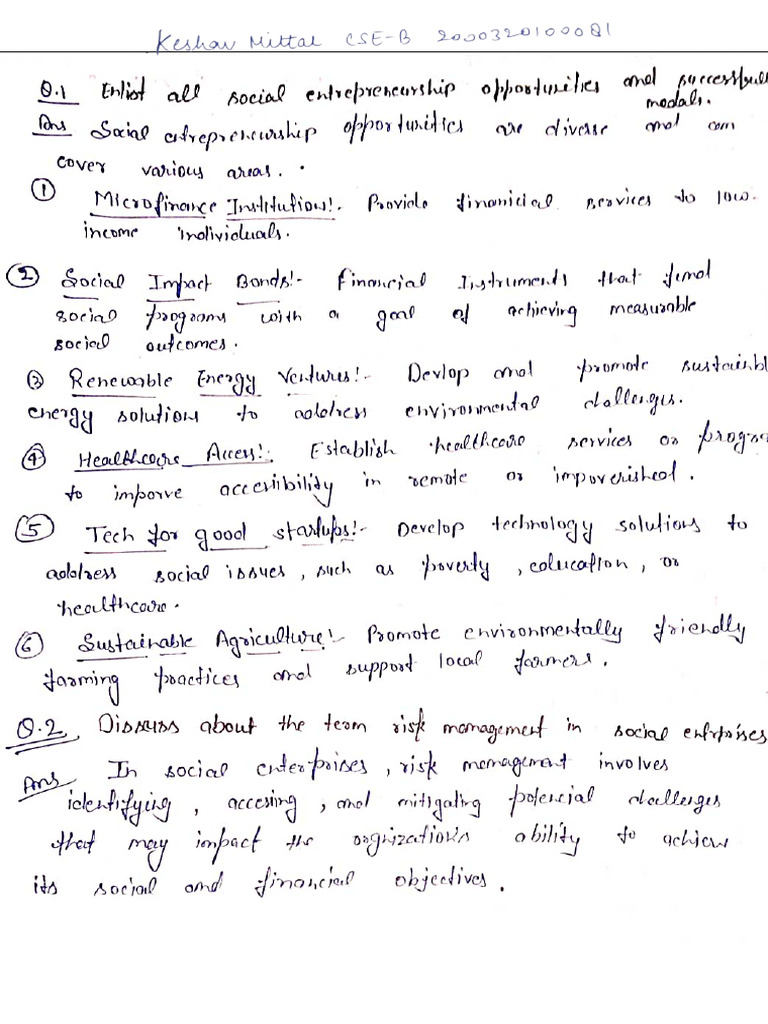 Keshav Mittal CSE-B 2000320100081
Q.1 Enlist all social entrepreneurship opportunities and successful
modals.
Ans Social etrepreneurship opportunities are diverse and can
cover various areas.
① Microfinance Institution!. Provide finanicial services to low-
income individuals.
② Social Impact Bonds!- Financial Instruments that fund
social programs with a goal of achieving measurable
social outcomes.
③ Renewable Energy Ventures!- Devlop and promote sustainabl
energy solutions to address environmental challenges.
④ Healthcare Access!. Establish healthcare services or progra
to imporve accesibility in remote or impoverished.
⑤ Tech for good startups!- Develop technology solutions to
address social issues, such as poverty, education, or
healthcare.
⑥ Sustainable Agriculture! Promote environmentally friendly
farming practices and support local farmers.
Q.2 Discuss about the term risk management in social enterprises
Ans In social enterprises, risk management involves
identifying, accesing, and mitigating potencial challenges
that may impact the orgnization's ability to achieve
its social and financial objectives.